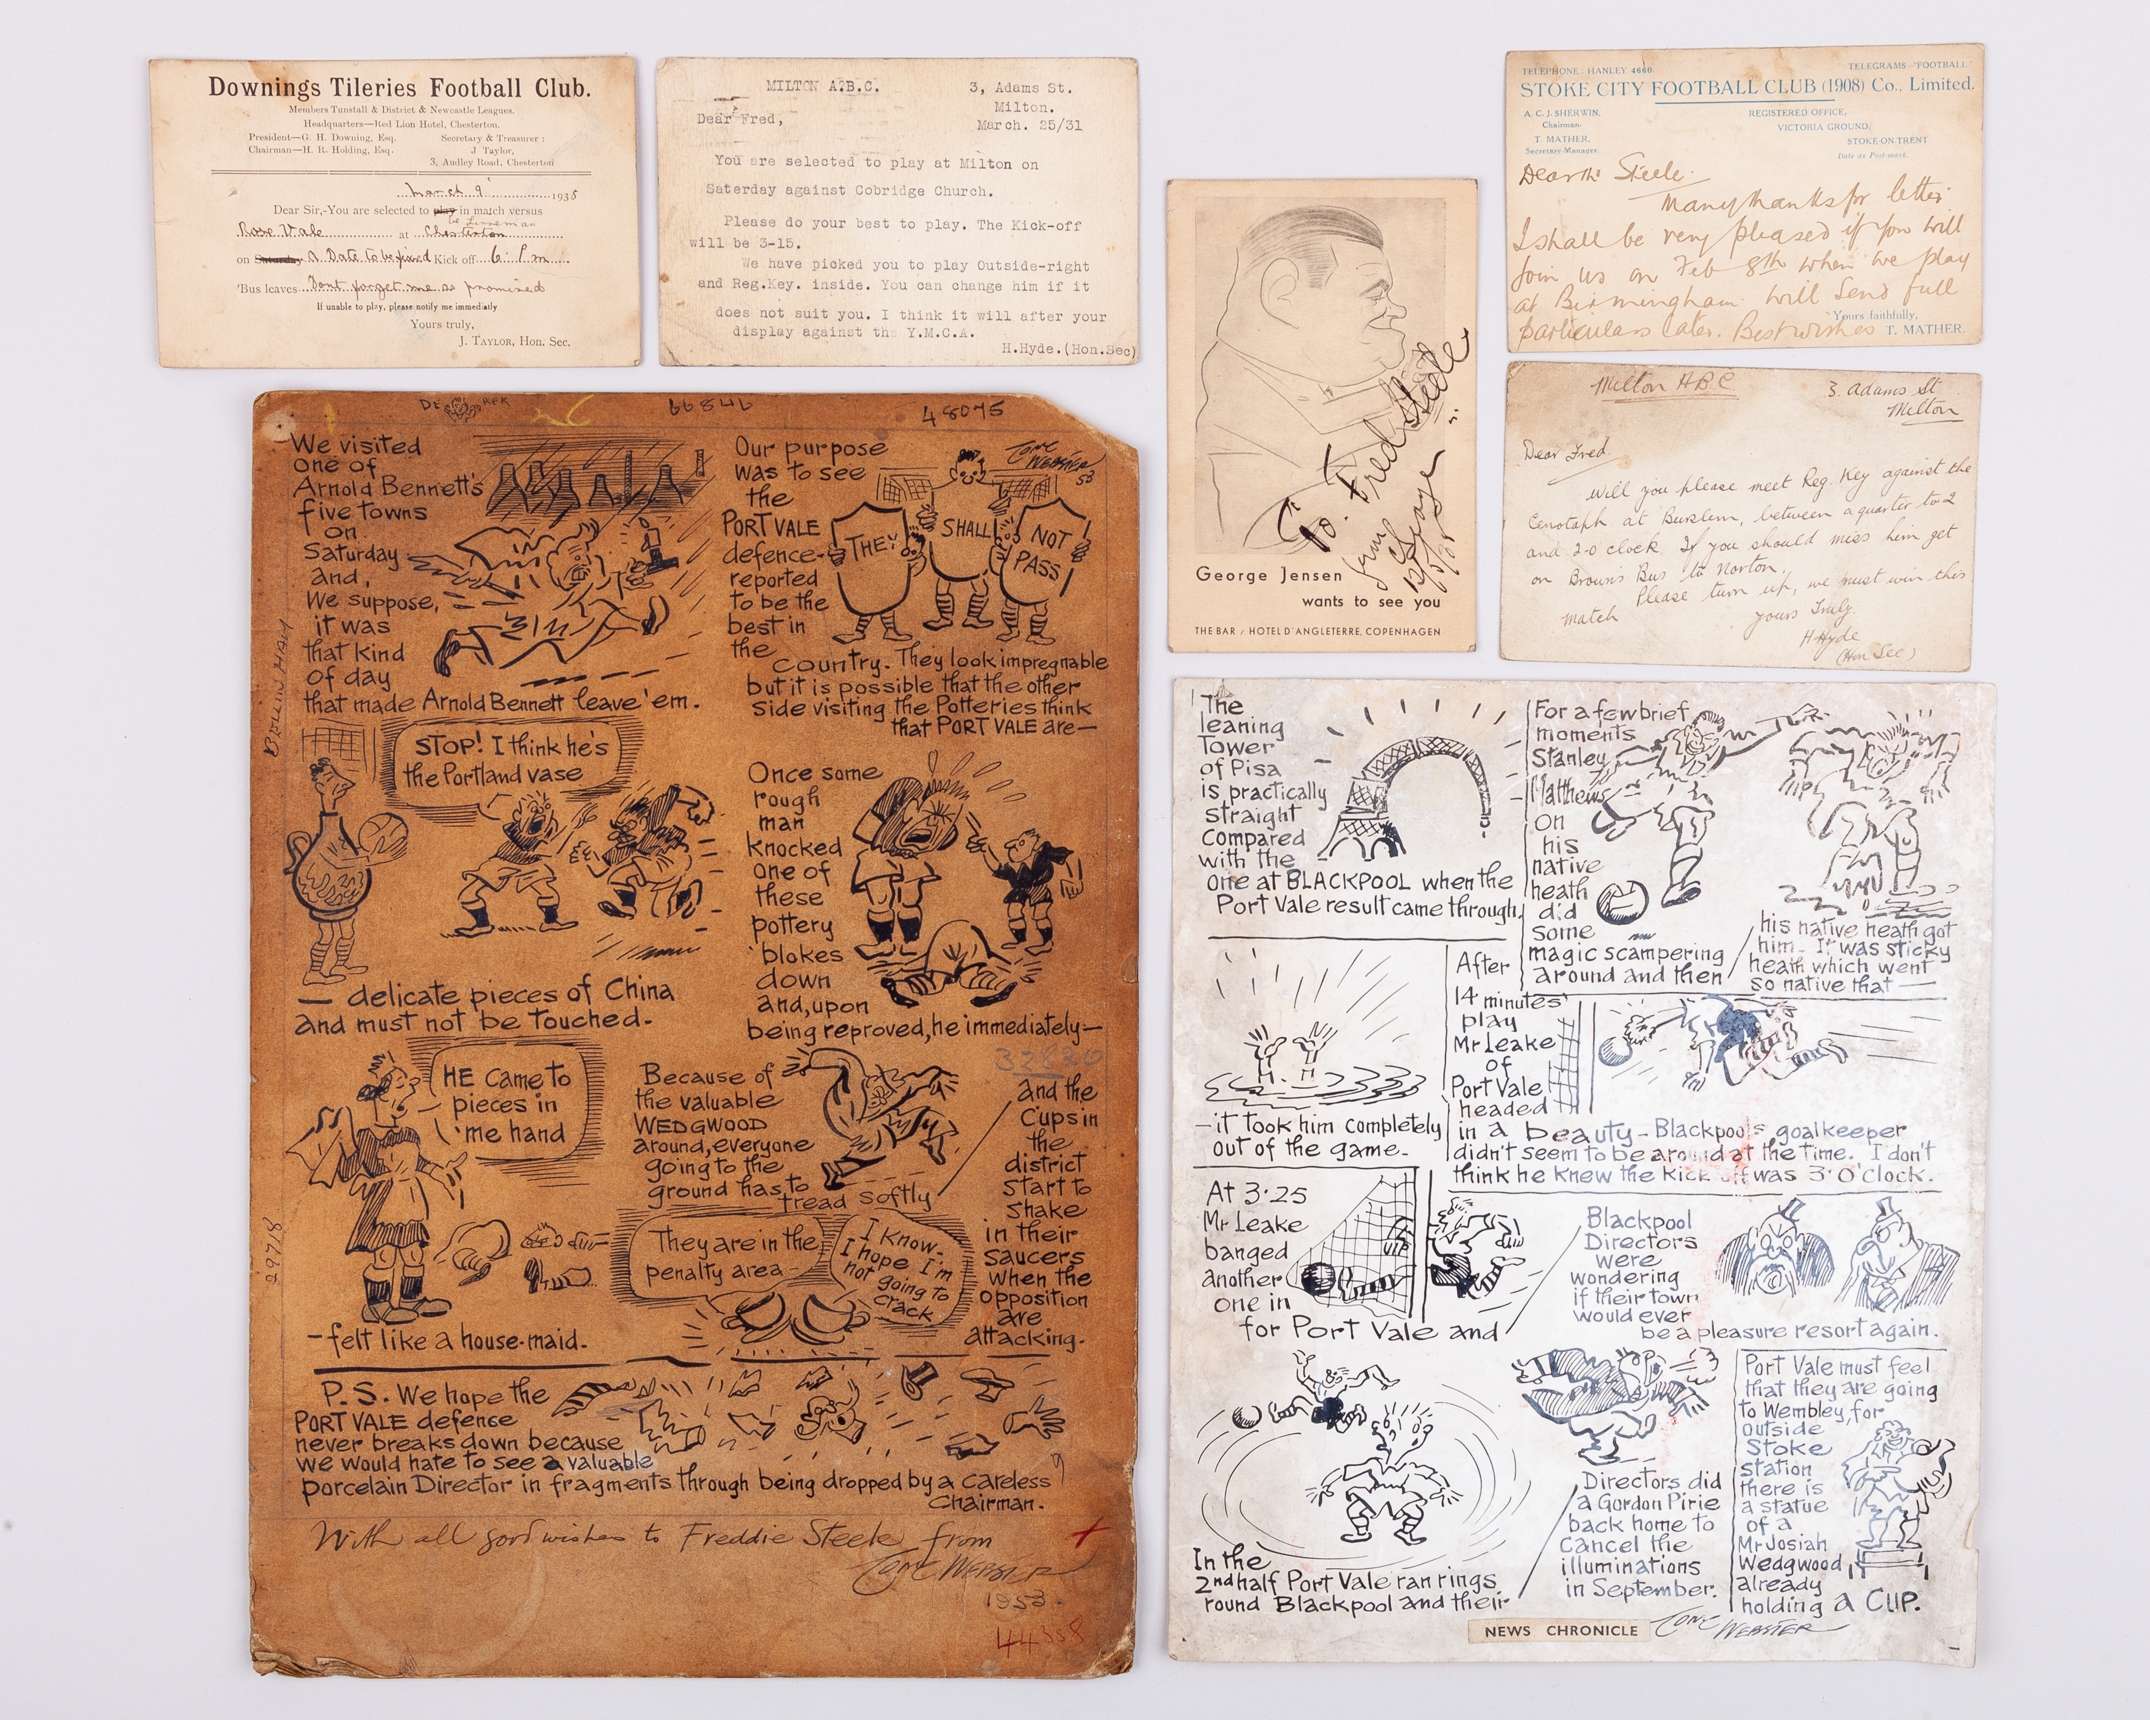 Downings Tileries Football Club.
Members Tunstall & District & Newcastle Leagues.
Headquarters—Red Lion Hotel, Chesterton.
President—G. H. Downing, Esq. Secretary & Treasurer :
Chairman—H. R. Holding, Esq. J Taylor,
3, Audley Road, Chesterton
March 9 1935
Dear Sir,-You are selected to play in match versus
be Linesman
Rose Vale at Chesterton
on Saturday A Date to be fixed Kick off 6. P.m.
'Bus leaves Dont forget me as promised
If unable to play, please notify me immediatly
Yours truly,
J. TAYLOR, Hon. Sec.
MILTON A.B.C. 3, Adams St.
Milton.
Dear Fred, March. 25/31
You are selected to play at Milton on
Saterday against Cobridge Church.
Please do your best to play. The Kick-off
will be 3-15.
We have picked you to play Outside-right
and Reg.Key. inside. You can change him if it
does not suit you. I think it will after your
display against the Y.M.C.A.
H.Hyde.(Hon.Sec)
To. Fred Steele
from
George Jensen
wants to see you
THE BAR / HOTEL D'ANGLETERRE, COPENHAGEN
TELEPHONE: HANLEY 4660. TELEGRAMS-"FOOTBALL"
STOKE CITY FOOTBALL CLUB (1908) Co., Limited.
A. C. J. SHERWIN, REGISTERED OFFICE,
Chairman. VICTORIA GROUND,
T. MATHER, STOKE-ON-TRENT
Secretary-Manager. Date as Post-mark.
Dear Mr Steele.
Many thanks for letter
I shall be very pleased if you will
join us on Feb 8th when we play
at Birmingham. Will send full
Yours faithfully,
particulars later. Best wishes T. MATHER.
Milton A B C 3. Adams St
Milton
Dear Fred.
Will you please meet Reg. Key against the
Cenotaph at Burslem, between a quarter to 2
and 2-0 clock If you should miss him get
on Brown's Bus to Norton.
Please turn up, we must win this
match yours Truly.
H Hyde
(Hon Sec)
DEREK 66846 48075
We visited
one of
Arnold Bennett's
five towns
on
Saturday
and,
We suppose,
it was
that kind
of day
that made Arnold Bennett leave 'em.
Our purpose
was to see
the
PORT VALE
defence-
reported
to be the
best in
the
Country. They look impregnable
but it is possible that the other
side visiting the Potteries think
that PORT VALE are—
TOM WEBSTER
53
THEY
SHALL
NOT
PASS
STOP! I think he's
the Portland vase
— delicate pieces of China
and must not be touched.
Once some
rough
man
knocked
one of
these
pottery
'blokes
down
and, upon
being reproved, he immediately—
32830
HE came to
pieces in
'me hand
—felt like a house-maid.
Because of
the valuable
WEDGWOOD
around, everyone
going to the
ground has to
tread softly
and the
Cups in
the
district
start to
shake
in their
saucers
when the
opposition
are
attacking.
They are in the
penalty area
I know-
I hope I'm
not going to
crack
P.S. We hope the
PORT VALE defence
never breaks down because
we would hate to see a valuable
porcelain Director in fragments through being dropped by a careless
Chairman.
With all good wishes to Freddie Steele from
TOM WEBSTER
1953.
44358
29718
The
leaning
Tower
of Pisa
is practically
straight
compared
with the
one at BLACKPOOL when the
Port Vale result came through.
For a few brief
moments
Stanley
Matthews
on
his
native
heath
did
some
magic scampering
around and then
his native heath got
him. It was sticky
heath which went
so native that —
—it took him completely
out of the game.
After
14 minutes'
play
Mr Leake
of
Port Vale
headed
in a beauty - Blackpool's goalkeeper
didn't seem to be around at the time. I don't
think he knew the kick off was 3 'O'Clock.
At 3.25
Mr Leake
banged
another
one in
for Port Vale and
Blackpool
Directors
were
wondering
if their town
would ever
be a pleasure resort again.
In the
2nd half Port Vale ran rings
round Blackpool and their
Directors did
a Gordon Pirie
back home to
cancel the
illuminations
in September.
Port Vale must feel
that they are going
to Wembley, for
outside
Stoke
station
there is
a statue
of a
Mr Josiah
Wedgwood
already
holding a CUP.
NEWS CHRONICLE TOM WEBSTER